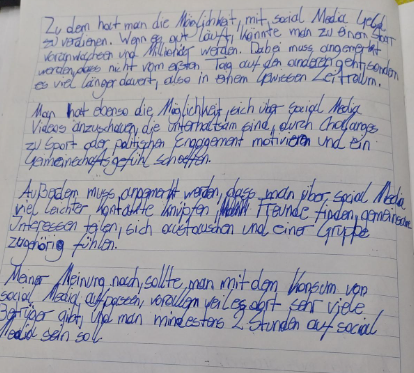 Zu dem hat man die Möglichkeit, mit social Media Geld
zu verdienen. Wenn es gut läuft, könnte man zu einem Star
und Millionär werden. Dabei muss angemerkt
werden, dass nicht vom ersten Tag auf den anderen geht, sondern
es viel länger dauert, also in einem gewissen Zeitraum.
Man hat ebenso die Möglichkeit, sich über Social Media
Videos anzuschauen, die unterhaltsam sind, durch
zu Sport oder politischen Engagement motivieren und ein
Gemeinschaftsgefühl schaffen.
Außerdem muss angemerkt werden, dass man über Social Media
viel leichter Kontakte knüpfen, Freunde finden, gemeinsame
Interessen teilen, sich austauschen und einer Gruppe
zugehörig fühlen.
Meiner Meinung nach, sollte man mit dem Konsum von
social Media aufpassen, vorallem weil es dort sehr viele
Betrüger gibt, und man mindestens 2 Stunden auf social
Media sein soll.